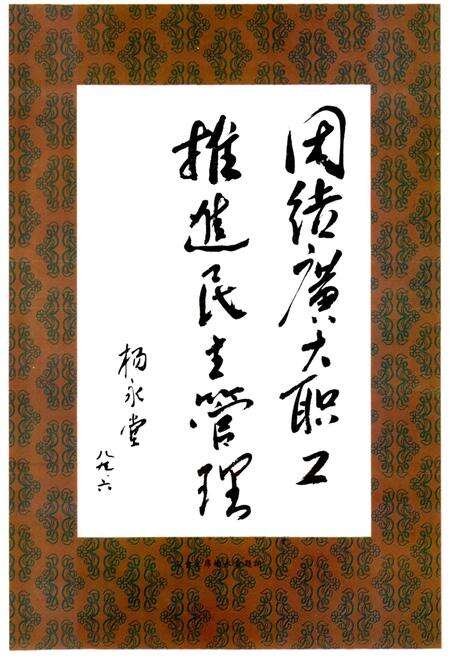 团结廣大职工
推進民主管理
杨永堂
八九·六